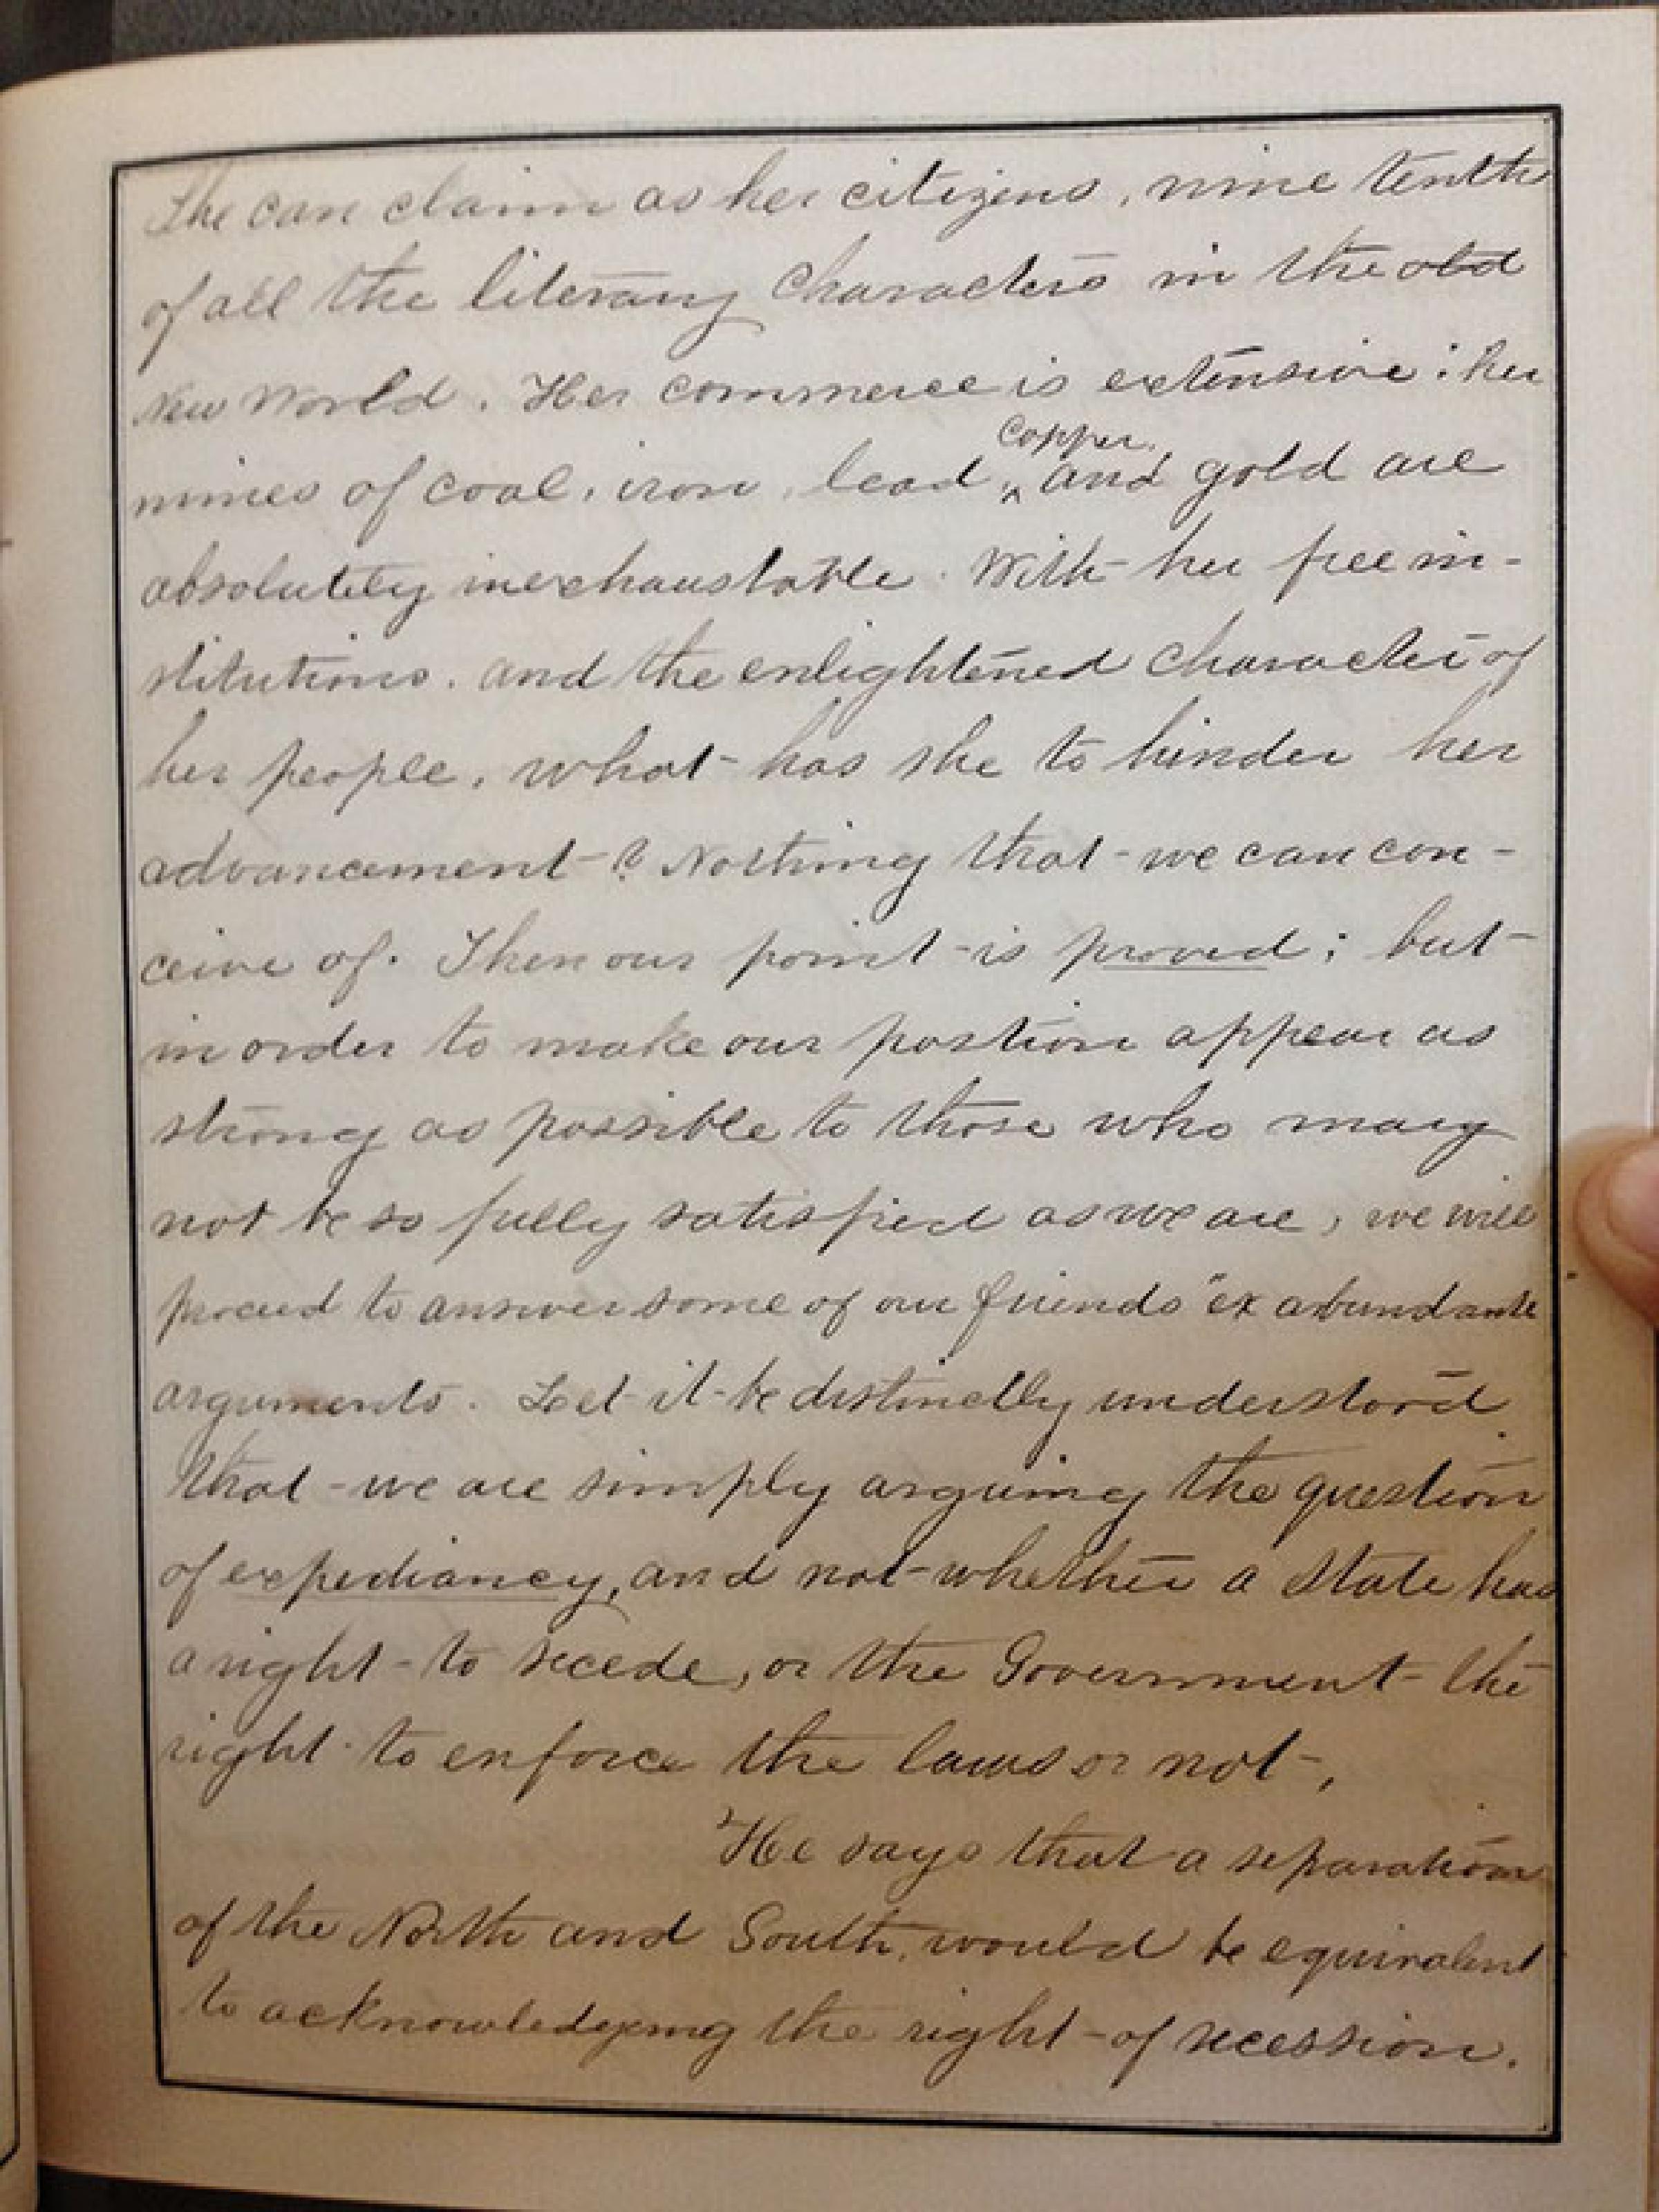 She can claim as her citizens, nine tenths
of all the literary characters in the old
New World. Her commerce is extensive: her
mines of coal, iron, lead, ^ Copper, and gold are
absolutely inexhaustable. With her free in-
stitutions, and the enlightened character of
her people, what has she to hinder her
advancement? Nothing that we can con-
ceive of. Then our point is proved; but
in order to make our postion appear as
strong as possible to those who may
not be so fully satisfied as we are, we will
proceed to answer some of our friends "ex abundante"
arguments. Let it be distinctly understood
that we are simply arguing the question
of expediancy, and not whether a State has
a right to secede, or the Government the
right to enforce the laws or not,
He says that a separation
of the North and South, would be equivalent
to acknowledgeing the right of secession.